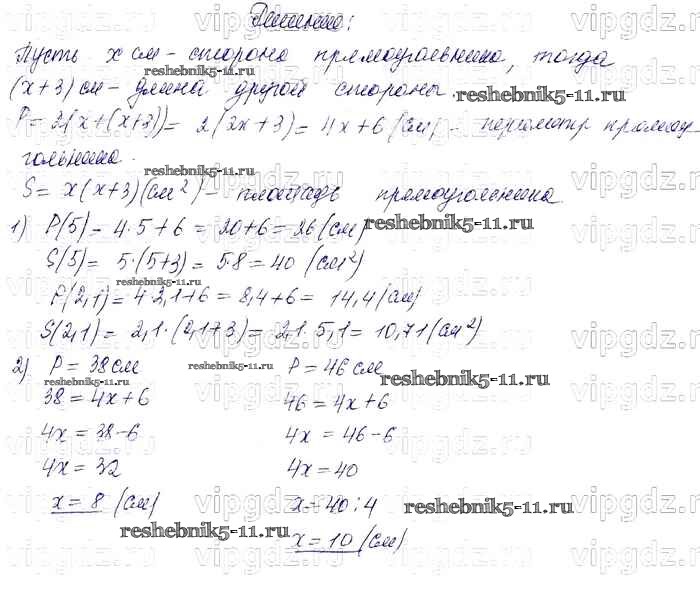 Решение:
Пусть x см - сторона прямоугольника, тогда
(x+3) см - длина другой стороны.
P = 2(x+(x+3)) = 2(2x+3) = 4x+6 (см) - периметр прямоу-
гольника.
S = x(x+3) (см²) - площадь прямоугольника.
1) P(5) = 4·5+6 = 20+6 = 26 (см)
S(5) = 5·(5+3) = 5·8 = 40 (см²)
P(2,1) = 4·2,1+6 = 8,4+6 = 14,4 (см)
S(2,1) = 2,1·(2,1+3) = 2,1·5,1 = 10,71 (см²)
2) P = 38 см P = 46 см
38 = 4x+6 46 = 4x+6
4x = 38-6 4x = 46-6
4x = 32 4x = 40
x = 8 (см) x = 40:4
x = 10 (см)
reshebnik5-11.ru
reshebnik5-11.ru
reshebnik5-11.ru
reshebnik5-11.ru
reshebnik5-11.ru
reshebnik5-11.ru
reshebnik5-11.ru
reshebnik5-11.ru
reshebnik5-11.ru
vipgdz.ru